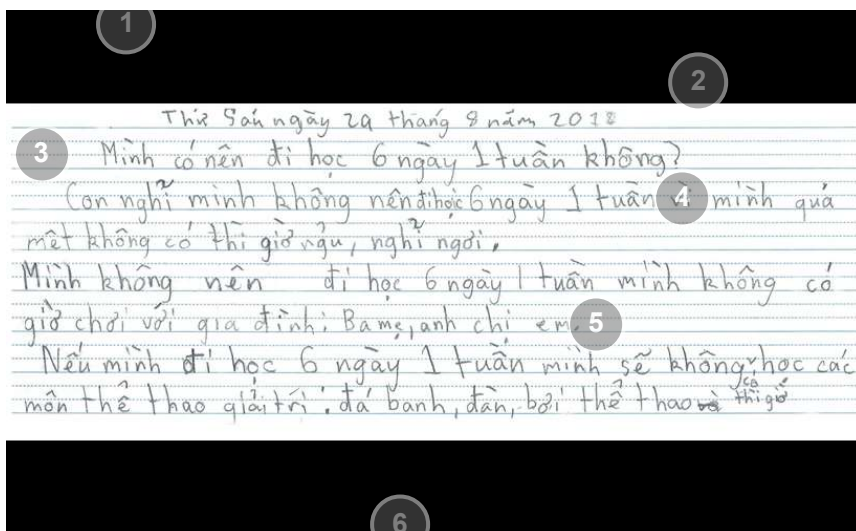 1
2
Thứ Sáu ngày 29 tháng 8 năm 2018
3 Mình có nên đi học 6 ngày 1 tuần không?
Con nghĩ mình không nên đi học 6 ngày 1 tuần vì 4 mình quá
mêt không có thì giờ, nghỉ ngơi.
Mình không nên đi hoc 6 ngày 1 tuần mình không có
giờ chơi với gia đình: Ba mẹ, anh chị em. 5
Nếu mình đi hoc 6 ngày 1 tuần mình sẽ không có thì giờ hoc các
môn thể thao giải trí: đá banh, đàn, bơi thể thao
6